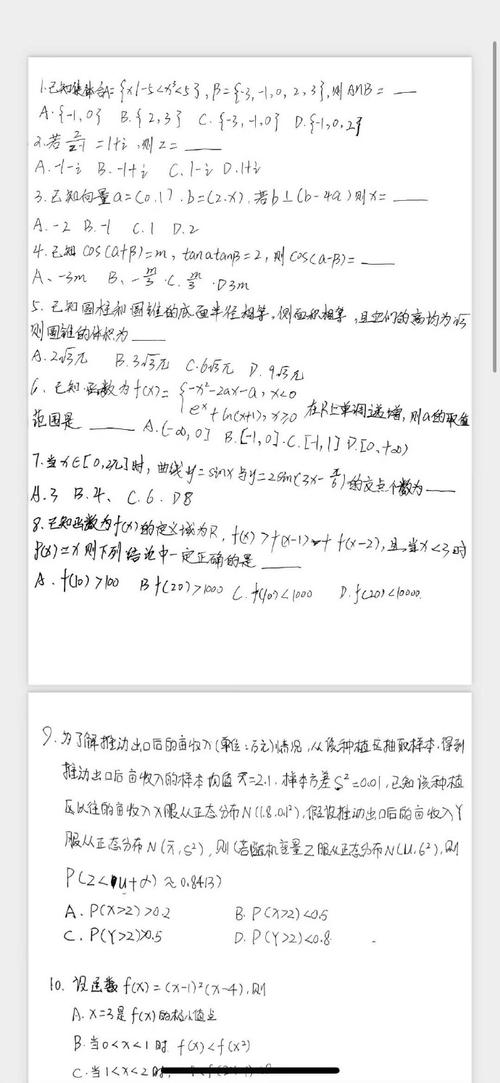 1.已知集合A={x|-5<x³<5},B={-3,-1,0,2,3},则A∩B=
A.{-1,0} B.{2,3} C.{-3,-1,0} D.{-1,0,2}
2.若 z/z-1 =1+i,则z=
A.-1-i B.-1+i C.1-i D.1+i
3.已知向量a=(0,1).b=(2,x),若b⊥(b-4a)则x=
A.-2 B.-1 C.1 D.2
4.已知cos(α+β)=m,tanαtanβ=2,则cos(α-β)=
A、-3m B、-m/3 .C.m/3 .D3m
5.已知圆柱和圆锥的底面半径相等,侧面积相等,且它们的高均为√3
则圆锥的体积为
A.2√3π B.3√3π C.6√3π D.9√3π
6.已知函数为f(x)={-x²-2ax-a,x<0
eˣ+ln(x+1),x≥0 在R上单调递增,则a的取值
范围是 A.(-∞,0] B.[-1,0].C.[-1,1] D.[0,+∞)
7.当x∈[0,2π]时,曲线y=sinx与y=2sin(3x-π/6)的交点个数为
A.3 B.4、 C.6. D8
8.已知函数为f(x)的定义域为R,f(x)>f(x-1)+f(x-2),且当x<3时
f(x)=x则下列结论中一定正确的是
A.f(10)>100 B f(20)>1000 C.f(10)<1000 D.f(20)<10000.
9.为了解推动出口后的亩收入(单位:万元)情况,从该种植区抽取样本,得到
推动出口后亩收入的样本均值x̄=2.1.样本方差S²=0.01,已知该种植
区以往的亩收入X服从正态分布N(1.8,0.1²),假设推动出口后的亩收入Y
服从正态分布N(x̄,S²),则(若随机变量Z服从正态分布N(u,6²),则
P(Z<u+σ)≈0.8413)
A.P(X>2)>0.2 B.P(X>2)<0.5
C.P(Y>2)>0.5 D.P(Y>2)<0.8.
10.设函数f(x)=(x-1)²(x-4),则
A.x=3是f(x)的极小值点
B.当0<x<1时 f(x)<f(x²)
C.当1<x<2时